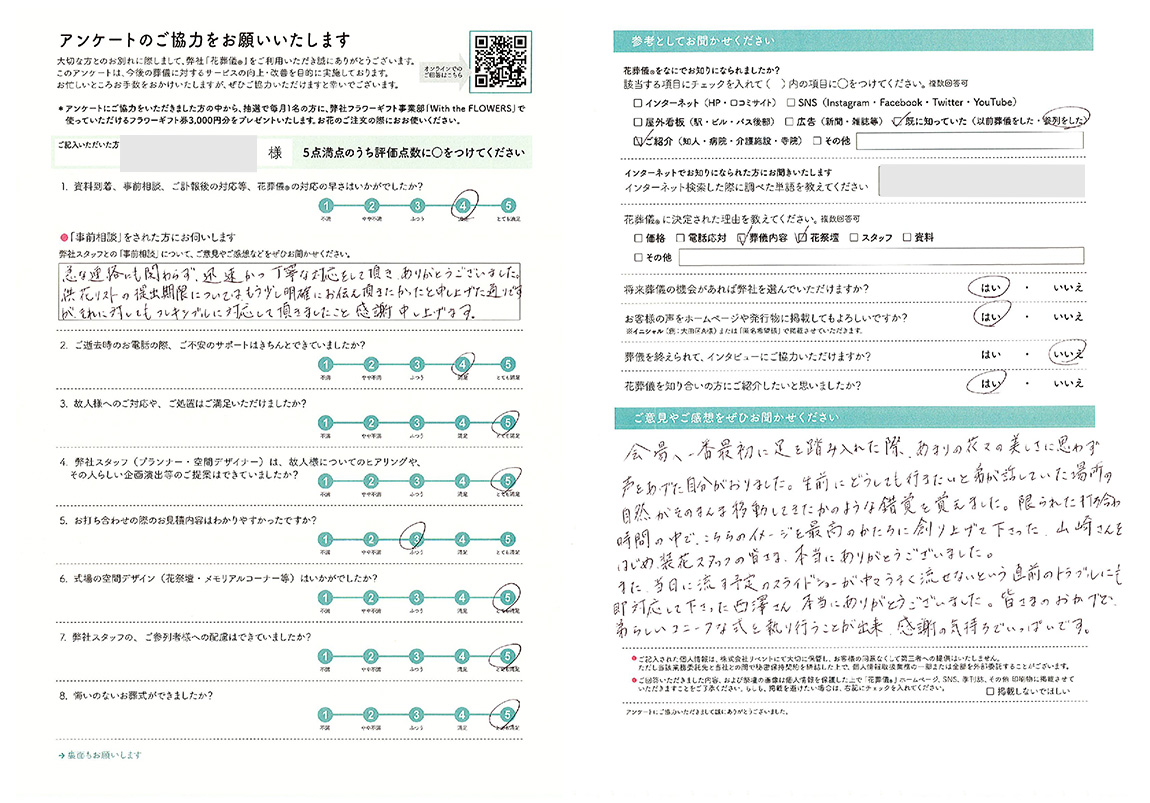 アンケートのご協力をお願いいたします
大切な方とのお別れに際しまして、弊社「花葬儀®」をご利用いただき誠にありがとうございます。
このアンケートは、今後の葬儀に対するサービスの向上・改善を目的に実施しております。
お忙しいところお手数をおかけいたしますが、ぜひご協力いただけますと幸いでございます。
オンラインでの
ご回答はこちら
＊アンケートにご協力をいただきました方の中から、抽選で毎月1名の方に、弊社フラワーギフト事業部「With the FLOWERS」で
使っていただけるフラワーギフト券3,000円分をプレゼントいたします。お花のご注文の際にお使いください。
ご記入いただいた方 様 5点満点のうち評価点数に○をつけてください
1. 資料到着、事前相談、ご訃報後の対応等、花葬儀®の対応の早さはいかがでしたか？
1 2 3 4 5
不満 やや不満 ふつう 満足 とても満足
●「事前相談」をされた方にお伺いします
弊社スタッフとの「事前相談」について、ご意見やご感想などをぜひお聞かせください。
急な連絡にも関わらず、迅速かつ丁寧な対応をして頂き、ありがとうございました。
供花リストの提出期限についてはもう少し明確にお伝え頂きたかったと申し上げた通りです
が、それに対してもフレキシブルに対応して頂きましたこと感謝申し上げます。
2. ご逝去時のお電話の際、ご不安のサポートはきちんとできていましたか？
1 2 3 4 5
不満 やや不満 ふつう 満足 とても満足
3. 故人様へのご対応や、ご処置はご満足いただけましたか？
1 2 3 4 5
不満 やや不満 ふつう 満足 とても満足
4. 弊社スタッフ（プランナー・空間デザイナー）は、故人様についてのヒアリングや、
その人らしい企画演出等のご提案はできていましたか？
1 2 3 4 5
不満 やや不満 ふつう 満足 とても満足
5. お打ち合わせの際のお見積内容はわかりやすかったですか？
1 2 3 4 5
不満 やや不満 ふつう 満足 とても満足
6. 式場の空間デザイン（花祭壇・メモリアルコーナー等）はいかがでしたか？
1 2 3 4 5
不満 やや不満 ふつう 満足 とても満足
7. 弊社スタッフの、ご参列者様への配慮はできていましたか？
1 2 3 4 5
不満 やや不満 ふつう 満足 とても満足
8. 悔いのないお葬式ができましたか？
1 2 3 4 5
不満 やや不満 ふつう 満足 とても満足
→裏面もお願いします
参考としてお聞かせください
花葬儀®をなにでお知りになられましたか？
該当する項目にチェックを入れて（ ）内の項目に○をつけてください。複数回答可
□インターネット（HP・口コミサイト） □SNS（Instagram・Facebook・Twitter・YouTube）
□屋外看板（駅・ビル・バス後部） □広告（新聞・雑誌等） ☑既に知っていた（以前葬儀をした・参列をした）
☑ご紹介（知人・病院・介護施設・寺院） □その他
インターネットでお知りになられた方にお聞きいたします
インターネット検索した際に調べた単語を教えてください
花葬儀®に決定された理由を教えてください。複数回答可
□価格 □電話応対 ☑葬儀内容 ☑花祭壇 □スタッフ □資料
□その他
将来葬儀の機会があれば弊社を選んでいただけますか？ はい ・ いいえ
お客様の声をホームページや発行物に掲載してもよろしいですか？ はい ・ いいえ
※イニシャル（例：大田区A様）または「匿名希望様」で掲載させていただきます。
葬儀を終えられて、インタビューにご協力いただけますか？ はい ・ いいえ
花葬儀を知り合いの方にご紹介したいと思いましたか？ はい ・ いいえ
ご意見やご感想をぜひお聞かせください
会場へ一番最初に足を踏み入れた際、あまりの花々の美しさに思わず
声をあげた自分がおりました。生前にどうしても行きたいと弟が話していた場所の
自然がそのまんま移動してきたかのような錯覚を覚えました。限られた打ち合わ
時間の中で、こちらのイメージを最高のかたちに創り上げて下さった、山崎さんを
はじめ、装花スタッフの皆さま、本当にありがとうございました。
また、当日に流す予定のスライドショーが中々うまく流せないという直前のトラブルにも
即対応して下さった西澤さん 本当にありがとうございました。皆さまのおかげで、
弟らしいユニークな式を執り行うことが出来、感謝の気持ちでいっぱいです。
●ご記入された個人情報は、株式会社リベントにて大切に保管し、お客様の同意なくして第三者への提供はいたしません。
ただし当該業務委託先と当社との間で秘密保持契約を締結した上で、個人情報取扱業務の一部または全部を外部委託することがございます。
●ご回答いただきました内容、および祭壇の画像は個人情報を保護した上で「花葬儀®」ホームページ、SNS、季刊誌、その他 印刷物に掲載させて
いただきますことをご了承ください。もしも、掲載を避けたい場合は、右記にチェックを入れてください。 □掲載しないでほしい
アンケートにご協力いただきまして誠にありがとうございました。